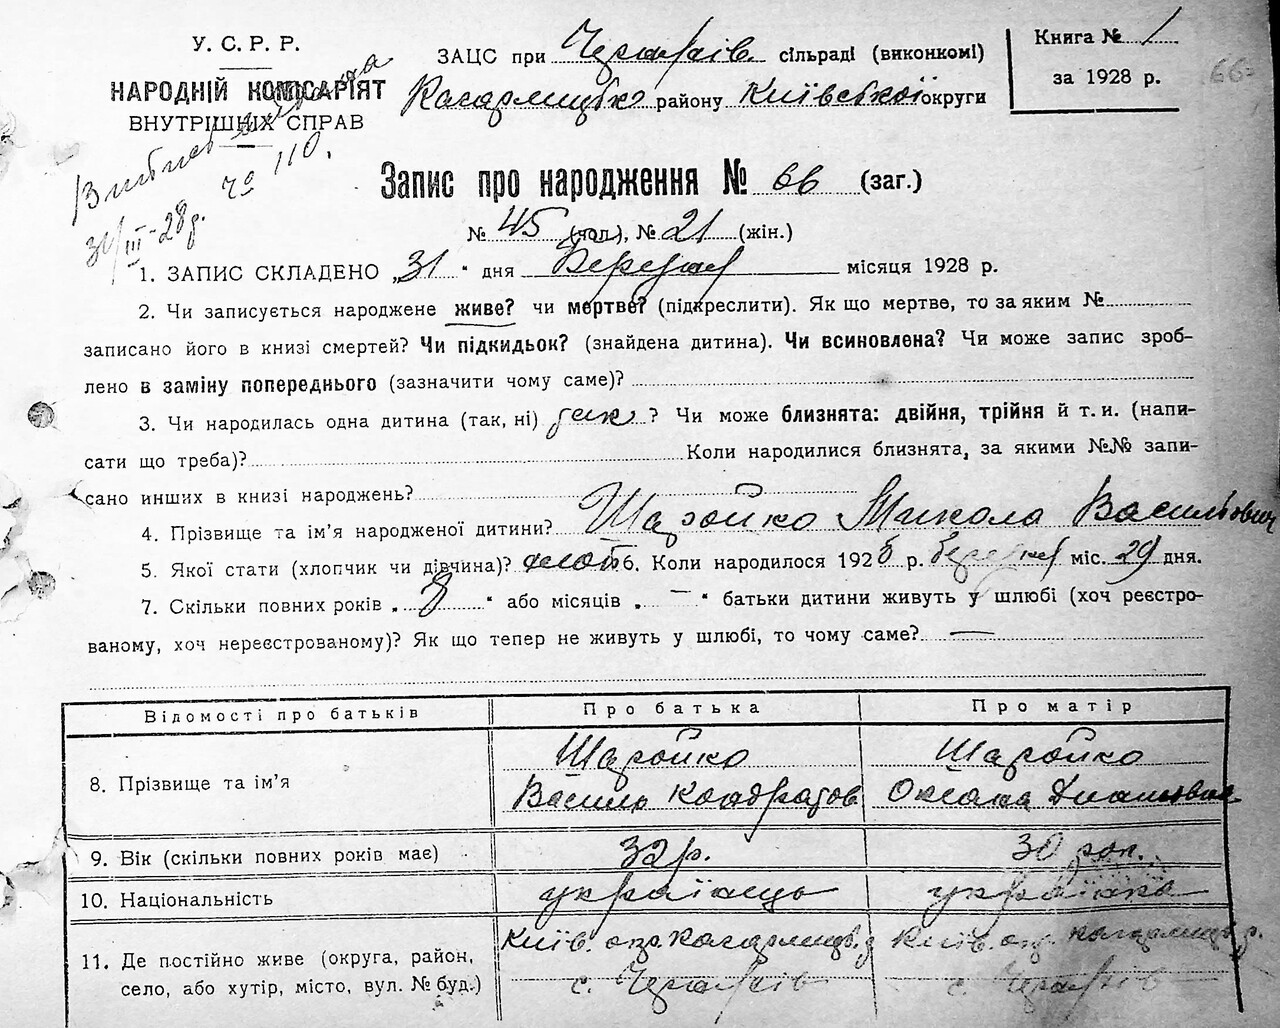 У. С. Р. Р.
НАРОДНІЙ КОМІСАРІЯТ
ВНУТРІШНІХ СПРАВ
№ 110.
31/III-28р.
ЗАЦС при сільраді (виконкомі)
Кагарлицьк району Київської округи
Книга № 1
за 1928 р.
66
Запис про народження № 66 (заг.)
№ 45 (чол.), № 21 (жін.)
1. ЗАПИС СКЛАДЕНО „31" дня Березня місяця 1928 р.
2. Чи записується народжене живе? чи мертве? (підкреслити). Як що мертве, то за яким №
записано його в книзі смертей? Чи підкидьок? (знайдена дитина). Чи всиновлена? Чи може запис зроб-
лено в заміну попереднього (зазначити чому саме)?
3. Чи народилась одна дитина (так, ні) так? Чи може близнята: двійня, трійня й т. и. (напи-
сати що треба)? Коли народилися близнята, за якими №№ запи-
сано инших в книзі народжень?
4. Прізвище та ім'я народженої дитини? Шаройко Микола Васильович
5. Якої статі (хлопчик чи дівчина)? хлоп б. Коли народилося 1928 р. березня міс. 29 дня.
7. Скільки повних років „8" або місяців „—" батьки дитини живуть у шлюбі (хоч реєстро-
ваному, хоч нереєстрованому)? Як що тепер не живуть у шлюбі, то чому саме? —
Відомості про батьків Про батька Про матір
8. Прізвище та ім'я Шаройко Шаройко
Василь Кондратов Оксана
9. Вік (скільки повних років має) 32 р. 30 рок.
10. Національність українець українка
11. Де постійно живе (округа, район, Київ. окр. Кагарлицьк. р Київ. окр. Кагарлицьк р.
село, або хутір, місто, вул. № буд.) с. с.